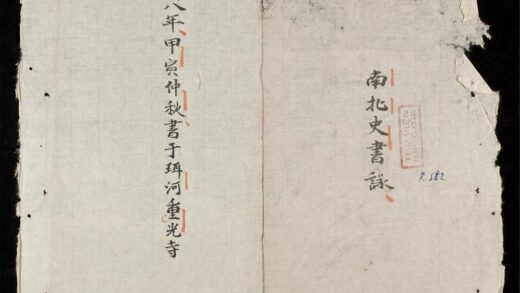 南北史書詠
R.582
八年甲寅仲秋書于珥河重光寺